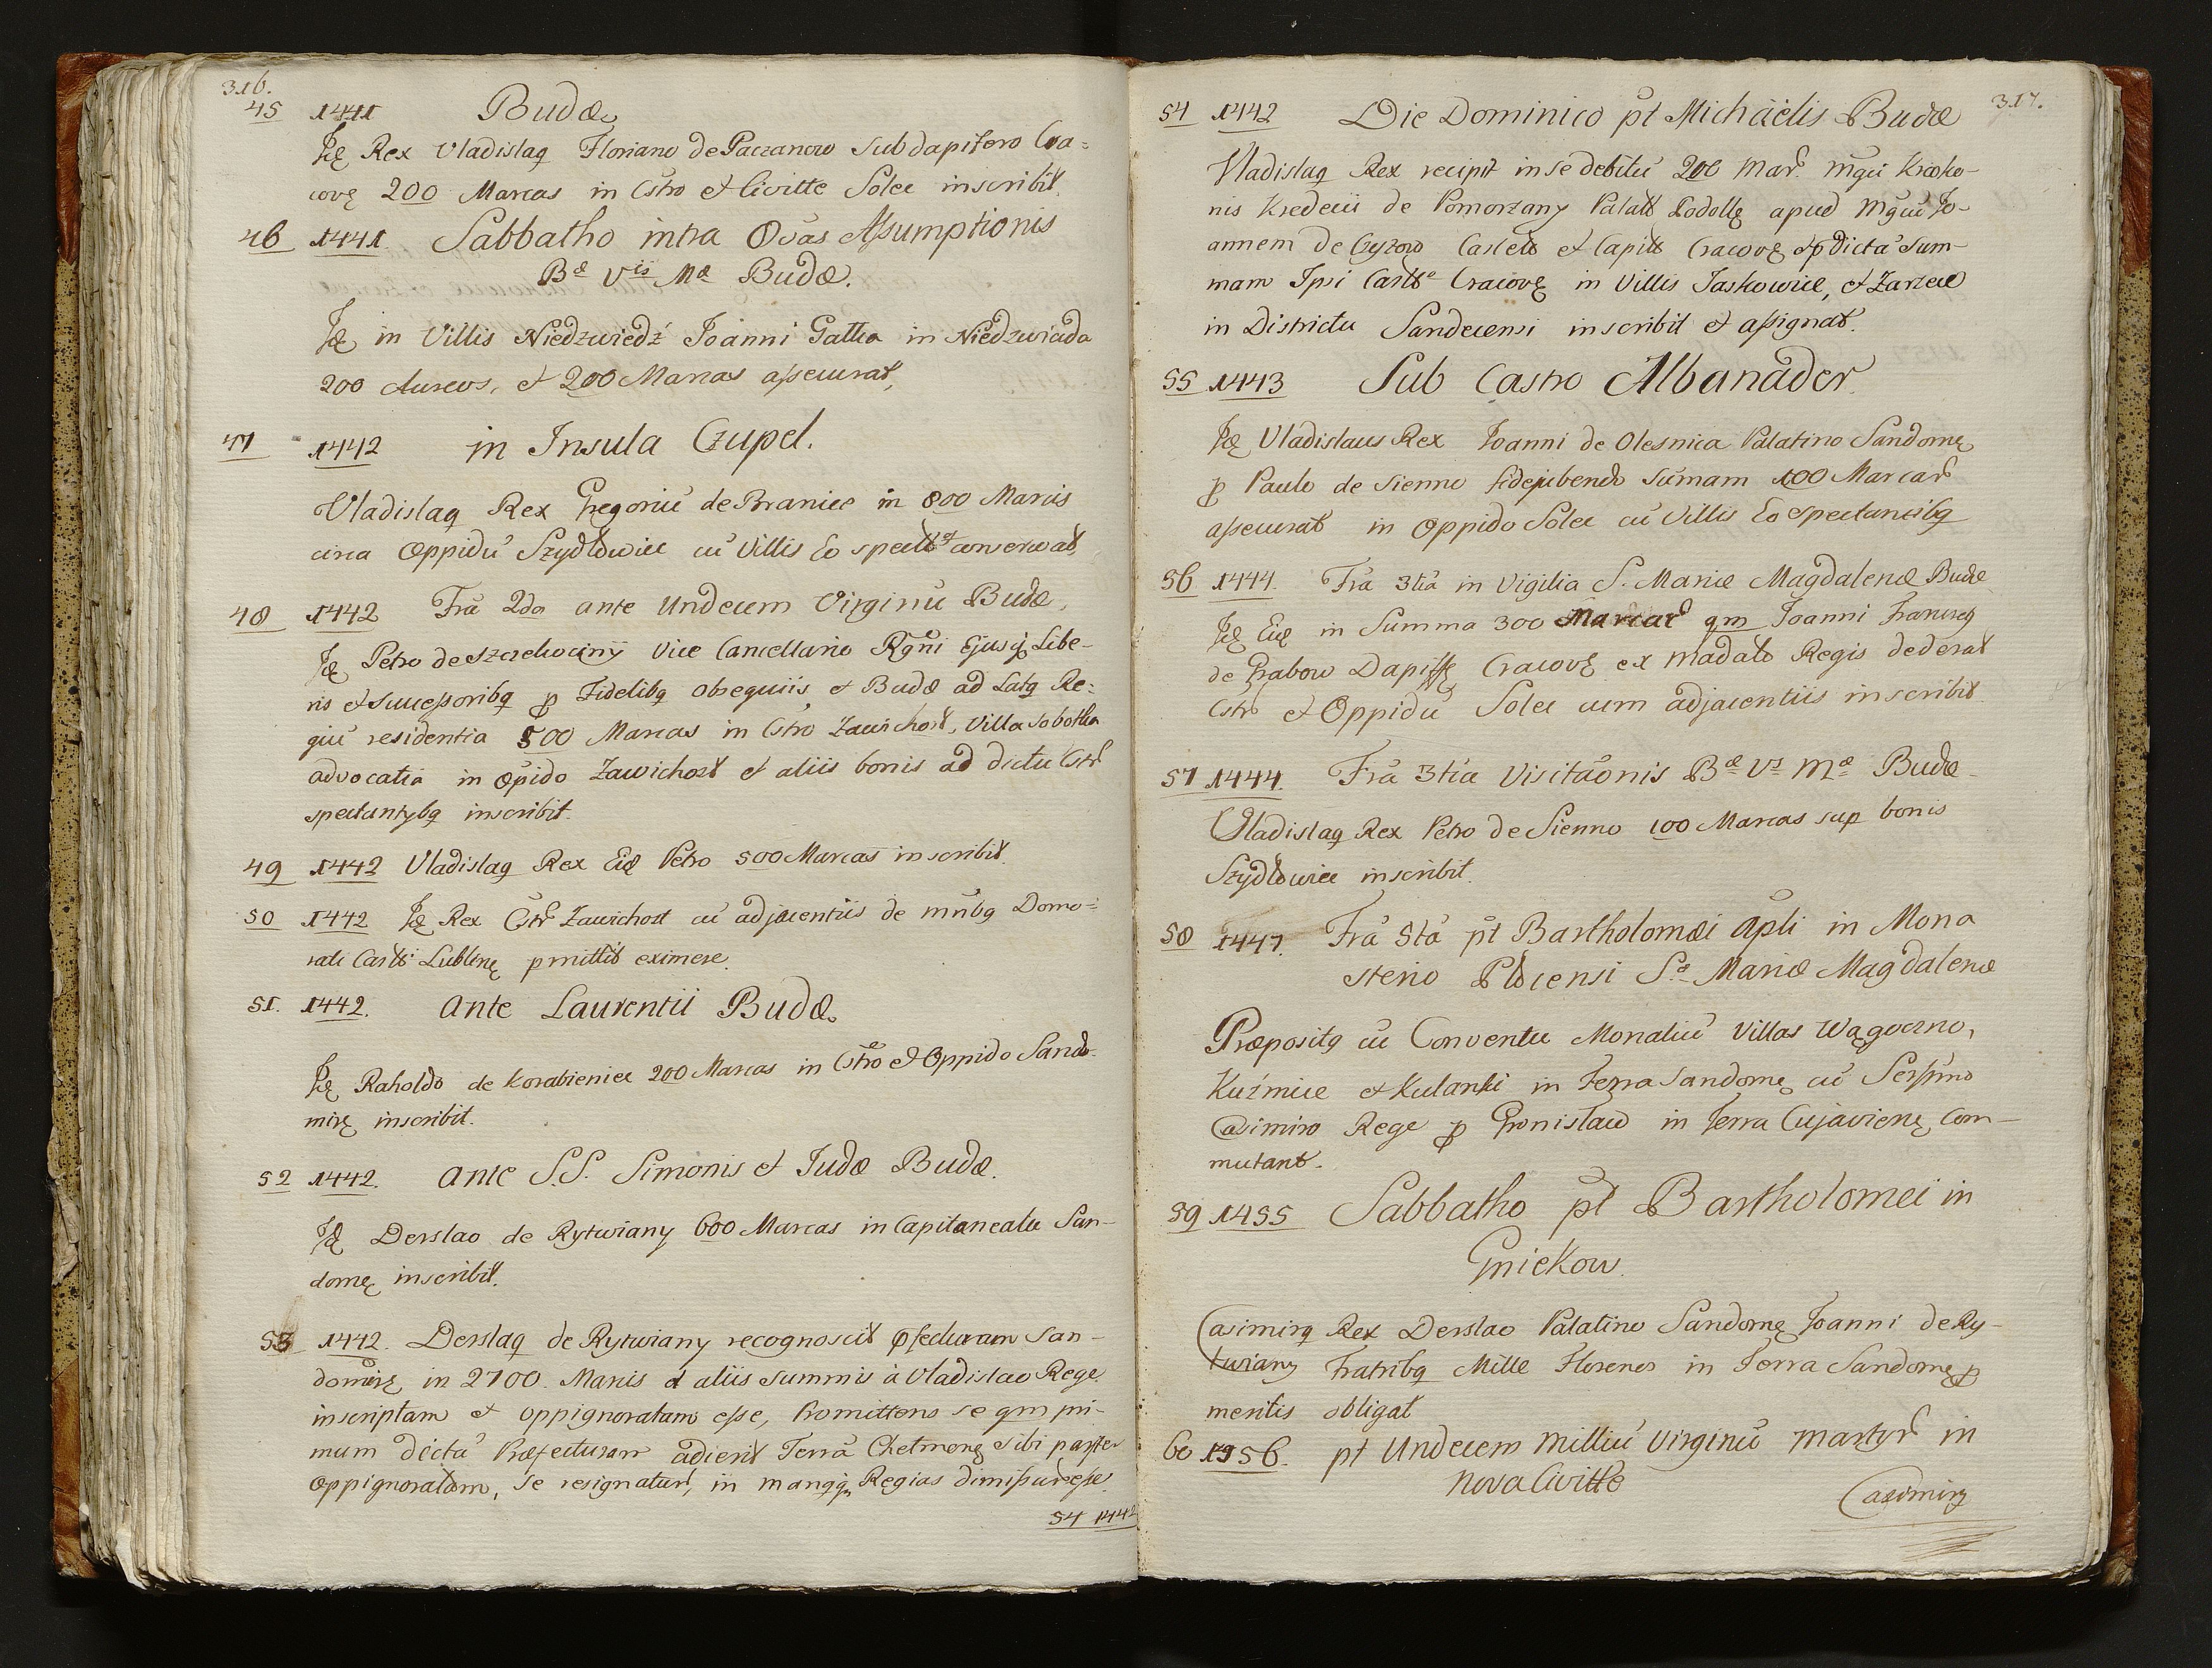 316.
45 1441 Budæ
Id[e] Rex Vladislaq Floriano de Pacanow Subdapifero Cra=
covę 200 Marcas in Cstro et Civitte Solec inscribit.
46 1441. Sabbatho intra Ovas Assumptionis
Bæ Vis Mæ Budæ.
Idę in Villis Niedzwiedź Joanni Gattka in Niedzwiada
200 Aureos, et 200 Marcas assecurat,
47 1442 in Insula Czupel.
Vladislaq Rex Gregoriū de Branice in 800 Marcis
circa Oppidū Szydłowiec cū Villis Eo spectt conservat,
48 1442 Fra 2da ante Undecem Virginū Budæ,
Idę Petro de Szczekociny Vice Cancellario Rgni Ejusq Libe-
ris et Successoribq p Fidelibq obsequiis, et Budæ ad Latq Re=
giū residentia 500 Marcas in Cstro Zawichost, Villa Sobotka
advocatia in opido Zawichost et aliis bonis ad dictū Cstr
spectantybq inscribit.
49 1442 Vladislaq Rex Eidę Petro 500 Marcas inscribit.
50 1442 Idę Rex Cstr Zawichost cū adjacentiis de mnbq Domo=
rati Castti Lublinę pmittit eximere.
51. 1442. Ante Laurentii Budæ
Idę Raholdo de Korabieniec 200 Marcas in Cstro et Oppido Sando-
mirę inscribit.
52 1442. Ante S.S. Simonis et Judæ Budæ.
Idę Derslao de Rytwiany 600 Marcas in Capitaneatu San-
domę inscribit.
53 1442. Derslaq de Rytwiany recognoscit pfecturam San-
domirę in 2700. Marcis et aliis summis à Vladislao Rege
inscriptam et oppignoratam esse, Promittens se qm pri-
mum dictā Præfecturam adierit Terrā Chełmenę sibi pariter
Oppignoratam, se resignatur, in manqq Regias dimissur esse.
54 1442
317.
54 1442 Die Dominico pt Michäelis Budæ
Vladislaq Rex recipit in se debitū 200 Mar. mgci Krasko-
nis Kredecii de Pomorzany Palatt Podollę apud Mgcū Jo-
annem de Czyzow Castett et Capitt Cracovę et pdictā Sum-
mam Ipsi Castto Cracovę in Villis Jaskowice, et Zarzece
in Districtu Sandecensi inscribit et assignat.
55 1443 Sub Castro Albanader.
Idę Vladislaus Rex Joanni de Olesnica Palatino Sandomę
p Paulo de Sienno fidejubendo Sumam 100 Marcar
assecurat in Oppido Solec cū Villis Eo Spectancibq
56 1444. Fra 3tia in Vigilia S. Mariæ Magdalenæ Budæ
Idę Eidę in Summa 300 Marcar qm Joanni Francisq
de Grabow Dapiffę Cracovę ex Madato Regis dederat
Cstr et Oppidū Solec cum adjacentiis inscribit
57 1444. Fra 3tia Visitaōnis Bæ Vs Mæ Budæ
Vladislaq Rex Petro de Sienno 100 Marcas sup bonis
Szydłowiec inscribit.
58 1447. Fra 5tā pt Bartholomæi Apli in Mona
sterio Płocensi Sæ Mariæ Magdalenæ
Præpositq cū Conventu Monaliū Villas Wągoczno,
Kuźmice et Kulanki in Terra Sandomę cū Serssmo
Casimiro Rege p Gronisław in Terra Cujavienę Com-
mutant.
59 1455 Sabbatho pt Bartholomei in
Gniekow.
Casimirq Rex Derslao Palatino Sandomę Joanni de Ry-
twiany Fratribq Mille Florenos in Terra Sandomę p
mentis obligat
60 1456. pt Undecem Milliū Virginū Martyr in
Nova Civitte
Casimirq